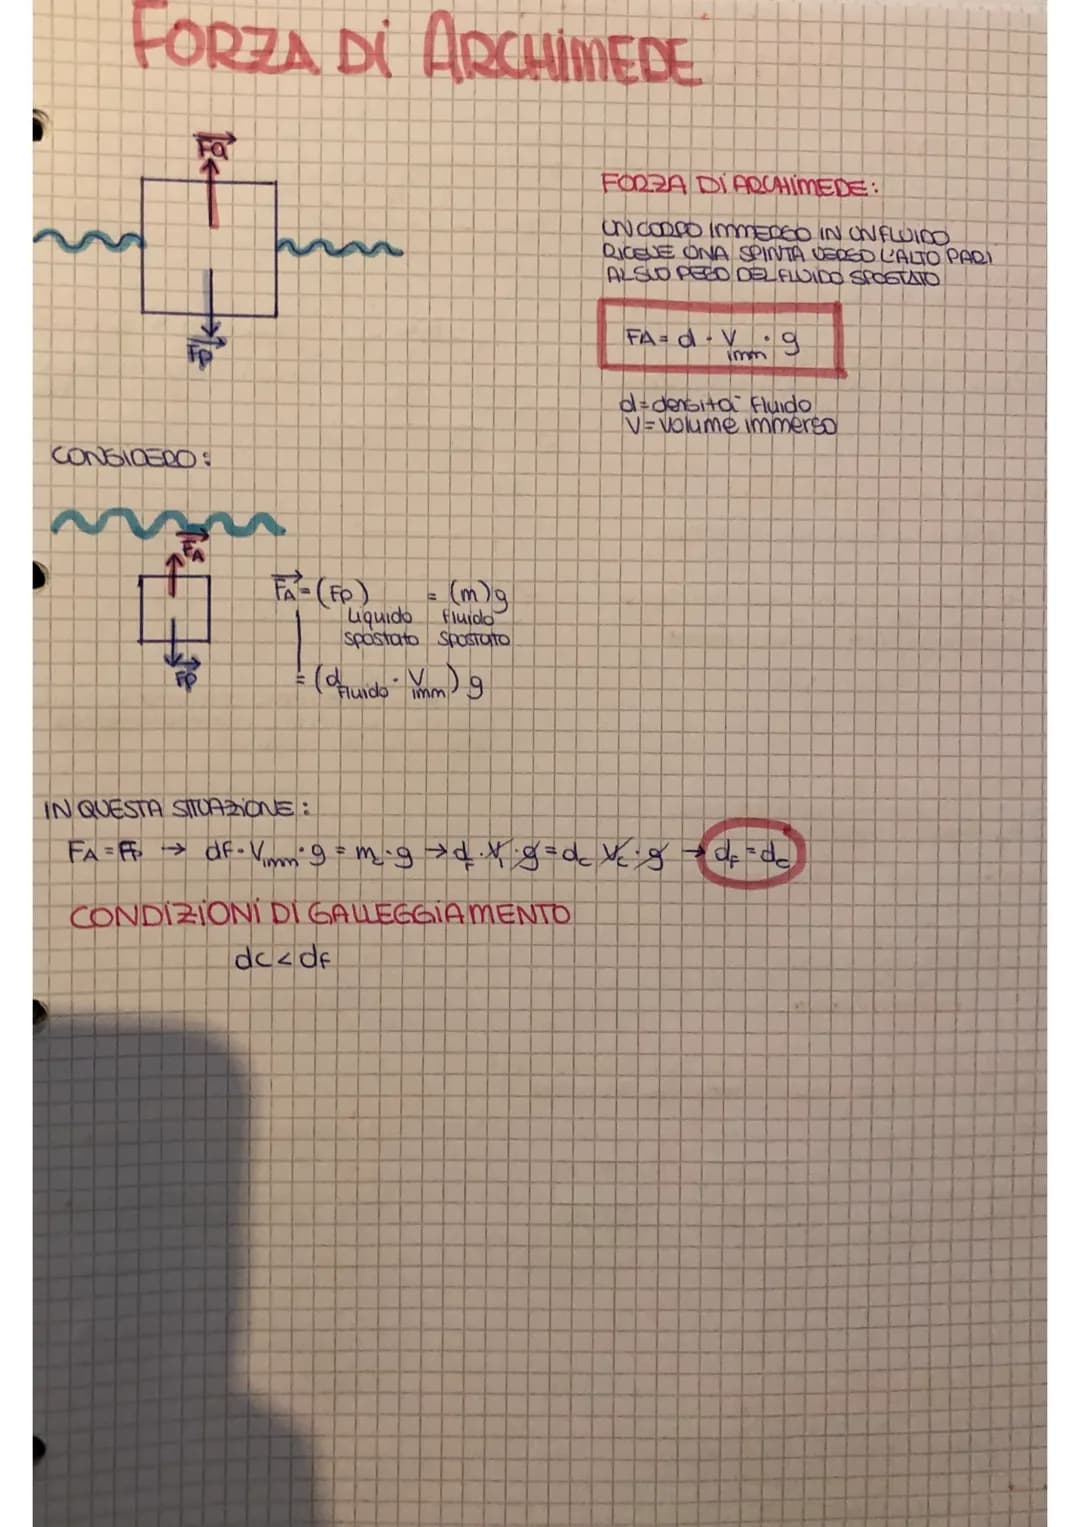 FORZA Di ARCHiMEDE
Fa
FORZA Di ARCHiMEDE:
UN CORPO IMMERSO IN UN FLUIDO
RICEVE UNA SPINTA VERSO L'ALTO PARI
AL SUO PESO DEL FLUIDO SPOSTATO
Fp
FA = d · V imm · g
d = densità Fluido
V = Volume immerso
CONSIDERO:
FA
FA = (Fp) Liquido spostato = (m) Fluido Spostato g
Fp
= (d Fluido · V imm) g
IN QUESTA SITUAZiONE:
FA = Fp → dF · Vimm · g = m · g → dF · Vi · g = dc Vc · g → dF = dc
CONDiZiONi Di GALLEGGiAMENTO
dc < dF